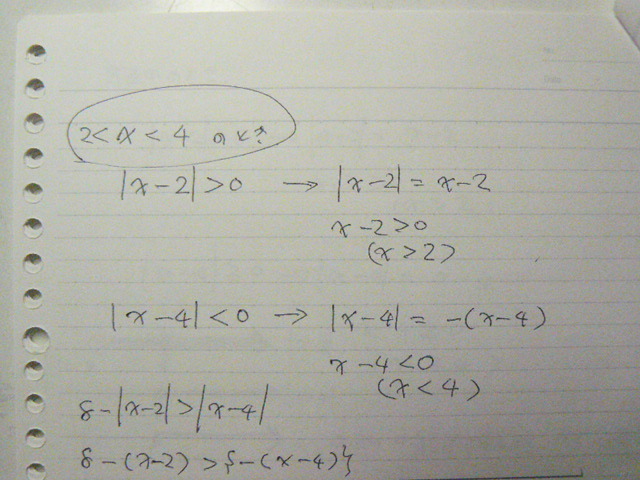 2<x<4 のとき
|x-2|>0 → |x-2|=x-2
x-2>0
(x>2)
|x-4|<0 → |x-4|=-(x-4)
x-4<0
(x<4)
8-|x-2|>|x-4|
8-(x-2)>{-(x-4)}